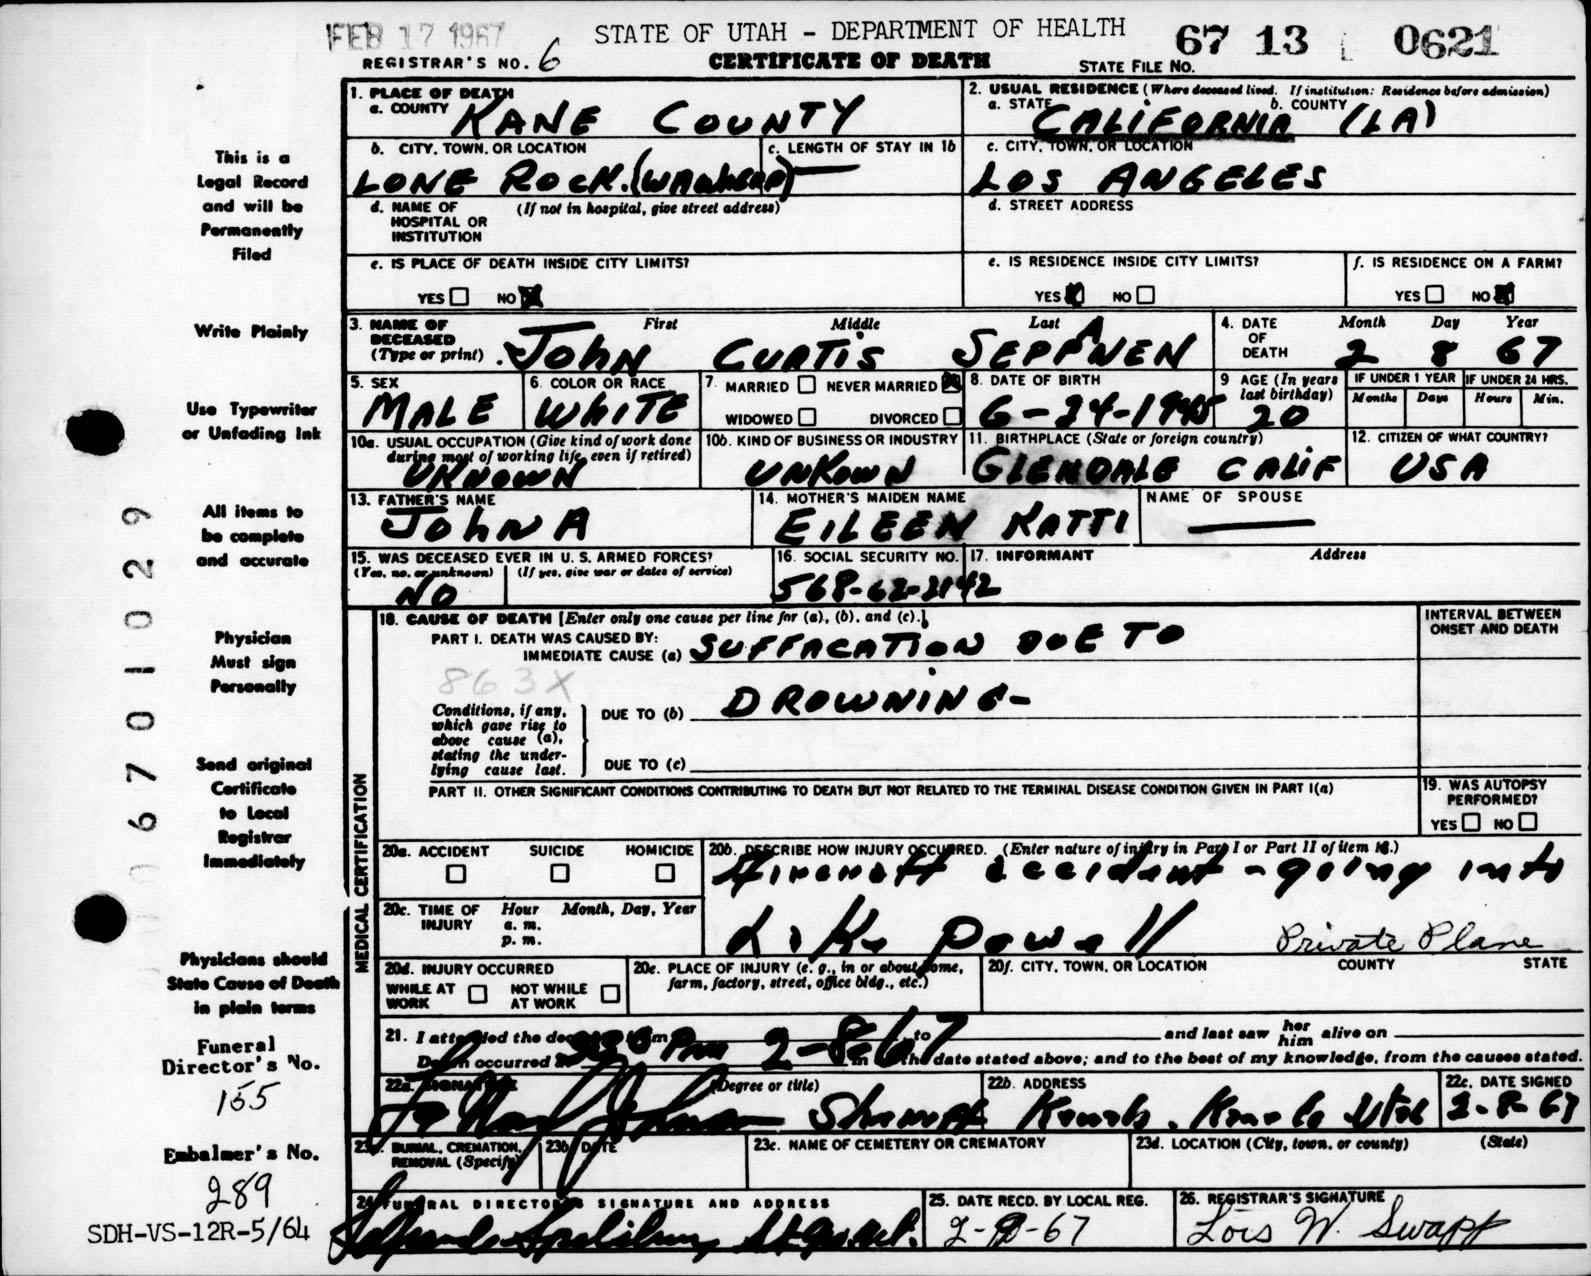 FEB 17 1967
STATE OF UTAH - DEPARTMENT OF HEALTH
67 13 0621
REGISTRAR'S NO. 6
CERTIFICATE OF DEATH
STATE FILE NO.
This is a
Legal Record
and will be
Permanently
Filed
Write Plainly
Use Typewriter
or Unfading Ink
All items to
be complete
and accurate
Physician
Must sign
Personally
Send original
Certificate
to Local
Registrar
Immediately
Physicians should
State Cause of Death
in plain terms
Funeral
Director's No.
155
Embalmer's No.
289
SDH-VS-12R-5/64
0 6 7 0 1 0 2 9
1. PLACE OF DEATH
a. COUNTY KANE COUNTY
2. USUAL RESIDENCE (Where deceased lived. If institution: Residence before admission)
a. STATE CALIFORNIA b. COUNTY (LA)
b. CITY, TOWN, OR LOCATION
LONE ROCK.
c. LENGTH OF STAY IN 1b
c. CITY, TOWN, OR LOCATION
LOS ANGELES
d. NAME OF HOSPITAL OR INSTITUTION (If not in hospital, give street address)
d. STREET ADDRESS
e. IS PLACE OF DEATH INSIDE CITY LIMITS?
YES NO X
e. IS RESIDENCE INSIDE CITY LIMITS?
YES X NO
f. IS RESIDENCE ON A FARM?
YES NO X
3. NAME OF DECEASED (Type or print) First Middle Last
JOHN CURTIS SEPPANEN
4. DATE OF DEATH Month Day Year
2 8 67
5. SEX
MALE
6. COLOR OR RACE
WHITE
7. MARRIED NEVER MARRIED X
WIDOWED DIVORCED
8. DATE OF BIRTH
6-24-1945
9 AGE (In years last birthday)
20
IF UNDER 1 YEAR
Months Days
IF UNDER 24 HRS.
Hours Min.
10a. USUAL OCCUPATION (Give kind of work done during most of working life, even if retired)
UKNOWN
10b. KIND OF BUSINESS OR INDUSTRY
UNKOWN
11. BIRTHPLACE (State or foreign country)
GLENDALE CALIF
12. CITIZEN OF WHAT COUNTRY?
USA
13. FATHER'S NAME
JOHN A
14. MOTHER'S MAIDEN NAME
EILEEN KATTI
NAME OF SPOUSE
15. WAS DECEASED EVER IN U. S. ARMED FORCES?
(Yes, no, or unknown) (If yes, give war or dates of service)
NO
16. SOCIAL SECURITY NO.
568-62-2142
17. INFORMANT Address
MEDICAL CERTIFICATION
18. CAUSE OF DEATH [Enter only one cause per line for (a), (b), and (c).]
PART I. DEATH WAS CAUSED BY:
IMMEDIATE CAUSE (a) SUFFACATION DUE TO
863X
Conditions, if any, which gave rise to above cause (a), stating the underlying cause last.
DUE TO (b) DROWNING-
DUE TO (c)
INTERVAL BETWEEN ONSET AND DEATH
PART II. OTHER SIGNIFICANT CONDITIONS CONTRIBUTING TO DEATH BUT NOT RELATED TO THE TERMINAL DISEASE CONDITION GIVEN IN PART I(a)
19. WAS AUTOPSY PERFORMED?
YES NO
20a. ACCIDENT SUICIDE HOMICIDE
20b. DESCRIBE HOW INJURY OCCURRED. (Enter nature of injury in Part I or Part II of item 18.)
Aircraft accident - going into
Lake Powell Private Plane
20c. TIME OF INJURY Hour Month, Day, Year
a. m.
p. m.
20d. INJURY OCCURRED
WHILE AT WORK NOT WHILE AT WORK
20e. PLACE OF INJURY (e. g., in or about home, farm, factory, street, office bldg., etc.)
20f. CITY, TOWN, OR LOCATION COUNTY STATE
21. I attended the deceased from to and last saw her him alive on
Death occurred at PM 2-8-67 on the date stated above; and to the best of my knowledge, from the causes stated.
22a. SIGNATURE (Degree or title)
22b. ADDRESS
Kanab, Kane Co Utah
22c. DATE SIGNED
2-8-67
23a. BURIAL, CREMATION, REMOVAL (Specify)
23b. DATE
23c. NAME OF CEMETERY OR CREMATORY
23d. LOCATION (City, town, or county) (State)
24. FUNERAL DIRECTOR'S SIGNATURE AND ADDRESS
25. DATE RECD. BY LOCAL REG.
2-9-67
26. REGISTRAR'S SIGNATURE
Lois W. Swapp